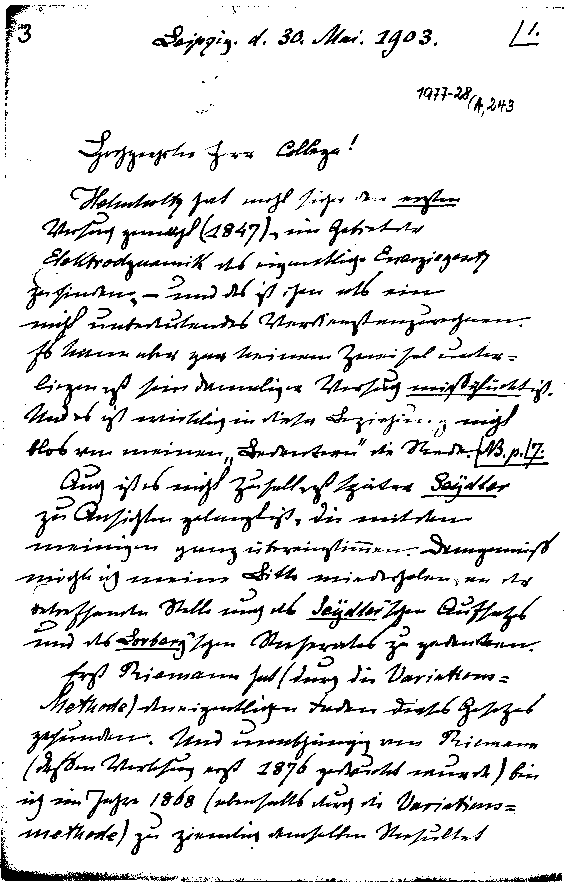 3 Leipzig. d. 30. Mai. 1903. 1.
1977-28/A,243
Hochgeehrter Herr College!
Helmholtz hat wohl sicher den ersten
Versuch gemacht (1847), im Gebiete der
Elektrodynamik das eigentliche Energiegesetz
zu finden, – und das ist ihm als ein
nicht unbedeutendes Verdienst anzurechnen.
Es kann aber gar keinem Zweifel unter-
liegen daß sein damaliger Versuch mißglückt ist.
Und es ist wichtig in dieser Beziehung nicht
blos von meinen „Bedenken" die Rede. NB. p. 7.
Auch ist es nicht Zufall daß später Seydler
zu Ansichten gelangt ist, die mit den
meinigen ganz übereinstimmen. Demgemäß
möchte ich meine Bitte wiederholen, an der
betreffenden Stelle auch des Seydler'schen Aufsatzes
und des Lorberg'schen Referates zu gedenken.
Erst Riemann hat (durch die Variations=
Methode) den eigentlichen Faden dieses Gesetzes
gefunden. Und unabhängig von Riemann
(dessen Vorlesung erst 1876 gedruckt wurde) bin
ich im Jahre 1868 (ebenfalls durch die Variations=
methode) zu ziemlich demselben Resultat